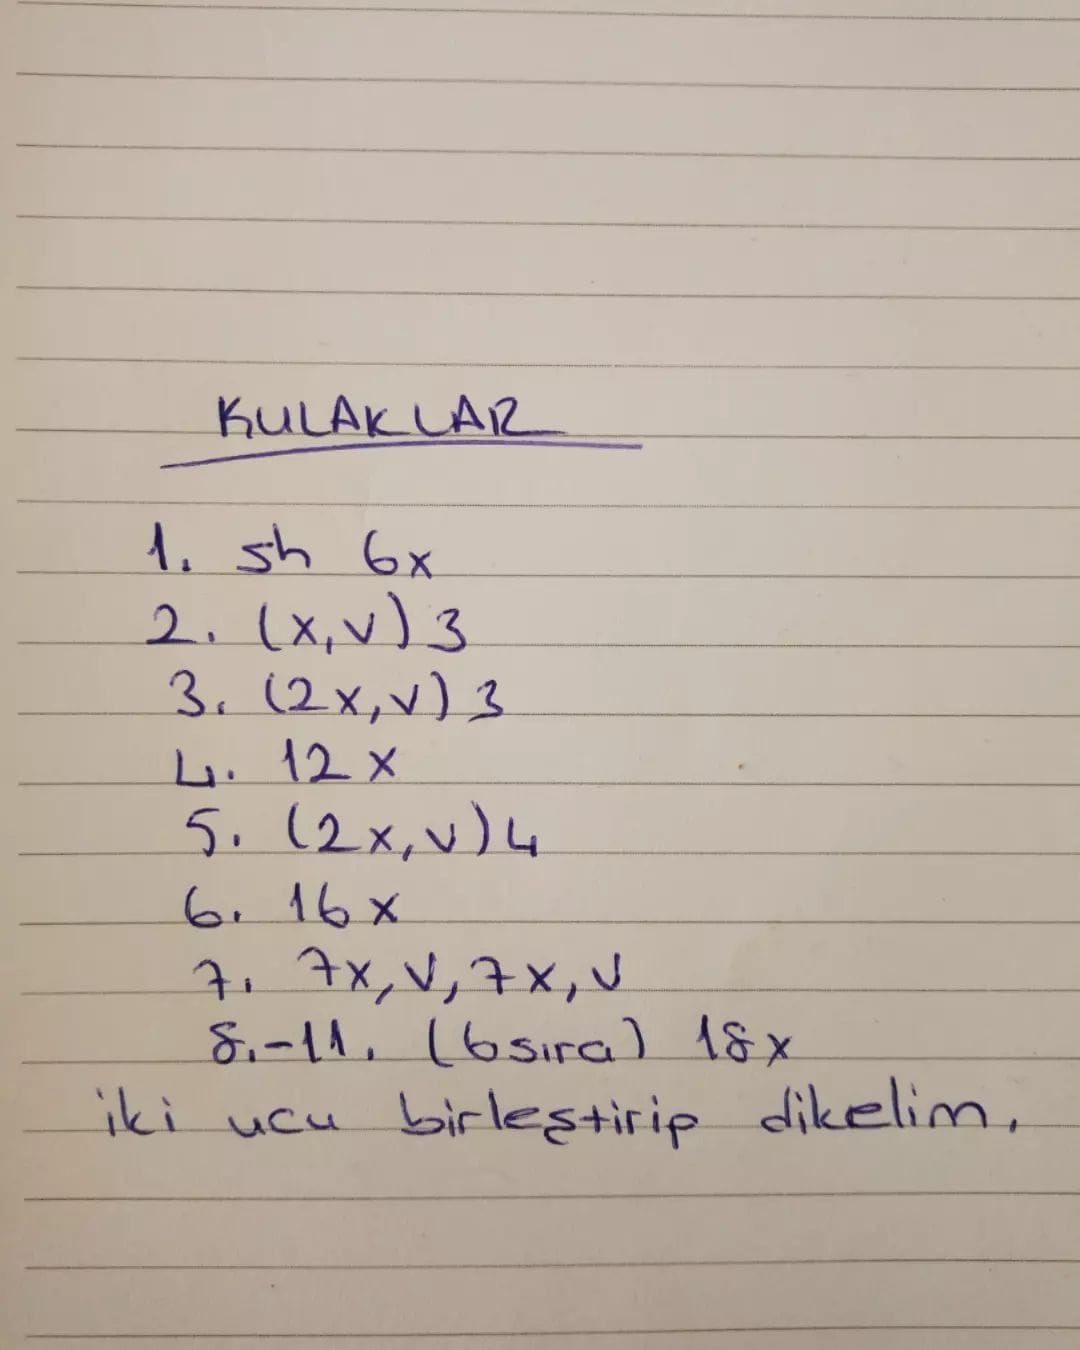 KULAKLAR
1. sh 6x
2. (x,v)3
3. (2x,v)3
4. 12x
5. (2x,v)4
6. 16x
7. 7x,v,7x,v
8.-11. (6sıra) 18x
iki ucu birleştirip dikelim.